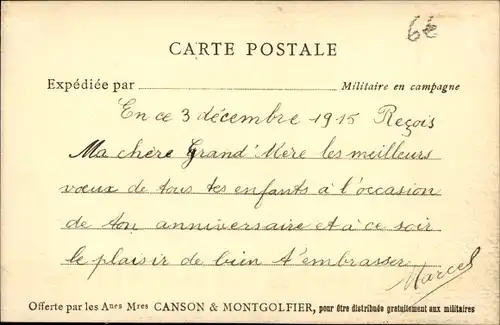 6€
CARTE POSTALE
Expédiée par Militaire en campagne
En ce 3 décembre 1915 Reçois
Ma chère Grand'Mère les meilleurs
vœux de tous tes enfants à l'occasion
de ton anniversaire et à ce soir
le plaisir de bien t'embrasser
Marcel
Offerte par les Anes Mres CANSON & MONTGOLFIER, pour être distribuée gratuitement aux militaires